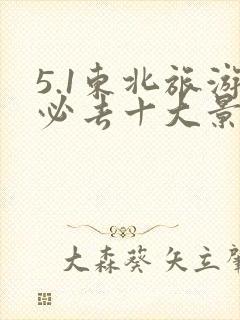 5.1东北旅游
必去十大景
大森葵 矢立肇